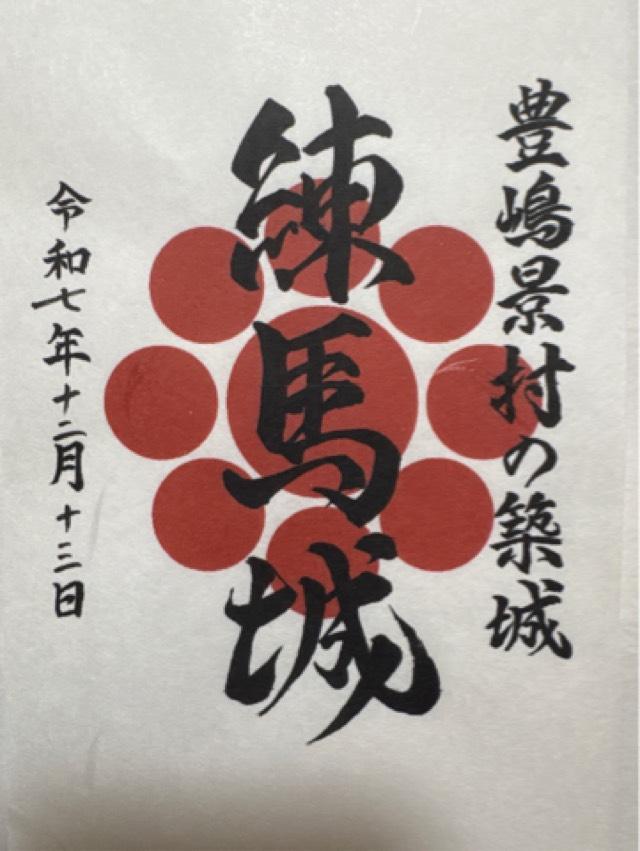 豊嶋景村の築城
練馬城
令和七年十二月十三日